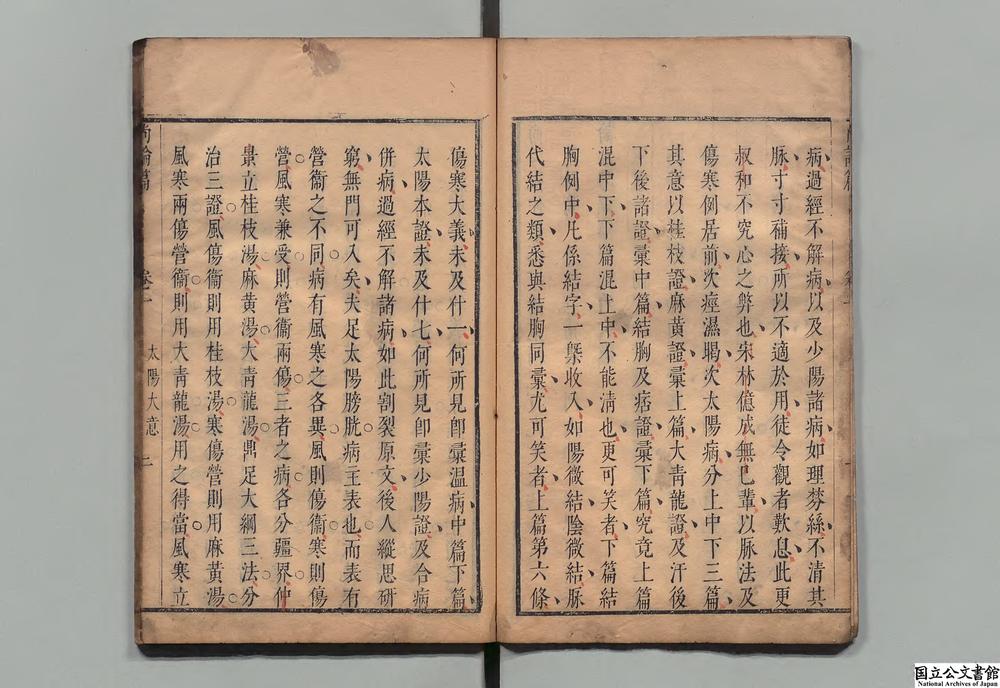 病過經不解病以及少陽諸病如理棼絲不清其
脉寸寸補接所以不適於用徒令觀者歎息此更
叔和不究心之弊也宋林億成無己輩以脉法及
傷寒例居前次痙濕暍次太陽病分上中下三篇
其意以桂枝證麻黃證彙上篇大青龍證及汗後
下後諸證彙中篇結胸及痞證彙下篇究竟上篇
混中下下篇混上中不能清也更可笑者下篇結
胸例中凡係結字一槩收入如陽微結陰微結脉
代結之類悉與結胸同彙尤可笑者上篇第六條
傷寒大義未及什一何所見卽彙溫病中篇下篇
太陽本證未及什七何所見卽彙少陽證及合病
併病過經不解諸病如此割裂原文後人縱思硏
窮無門可入矣夫足太陽膀胱病主表也而表有
營衞之不同病有風寒之各異風則傷衞寒則傷
營風寒兼受則營衞兩傷三者之病各分疆界仲
景立桂枝湯麻黃湯大青龍湯鼎足大綱三法分
治三證風傷衞則用桂枝湯寒傷營則用麻黃湯
風寒兩傷營衞則用大青龍湯用之得當風寒立
尚論篇 卷一 太陽大意 二
国立公文書館
National Archives of Japan